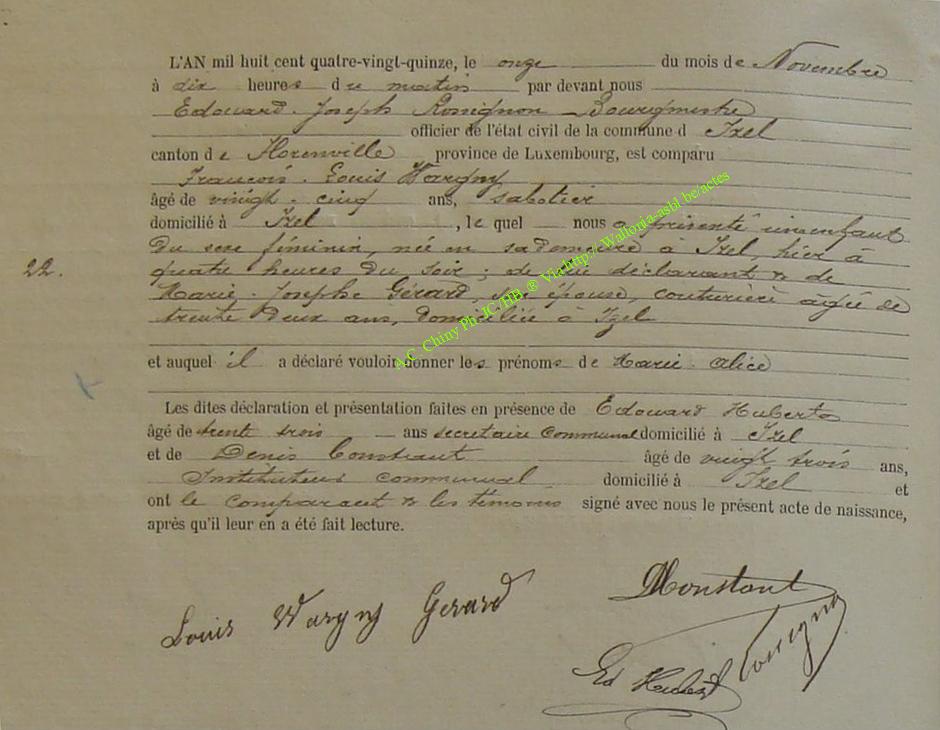 L'AN mil huit cent quatre-vingt-quinze, le onze du mois de Novembre
à dix heures du matin par devant nous
Edouard Joseph Rossignon Bourgmestre
officier de l'état civil de la commune d Izel
canton de Florenville province de Luxembourg, est comparu
François Louis Wargny
âgé de vingt-cinq ans, sabotier
domicilié à Izel, lequel nous a présenté un enfant
du sexe féminin, née en sa demeure à Izel, hier à
22. quatre heures du soir; de lui déclarant & de
Marie-Josephe Gérard, son épouse, couturière âgée de
trente deux ans, domiciliée à Izel
et auquel il a déclaré vouloir donner les prénoms de Marie Alice
Les dites déclaration et présentation faites en présence de Edouard Huberto
âgé de trente trois ans secretaire communal domicilié à Izel
et de Denis Constant âgé de vingt trois ans,
Instituteur communal domicilié à Izel et
ont le comparant & les témoins signé avec nous le présent acte de naissance,
après qu'il leur en a été fait lecture.
A.C. Chiny Ph.JC/HB ® Via http://Wallonia-asbl be/actes
Louis Wargny Gerard
DConstant
Ed Hubert Rossignon